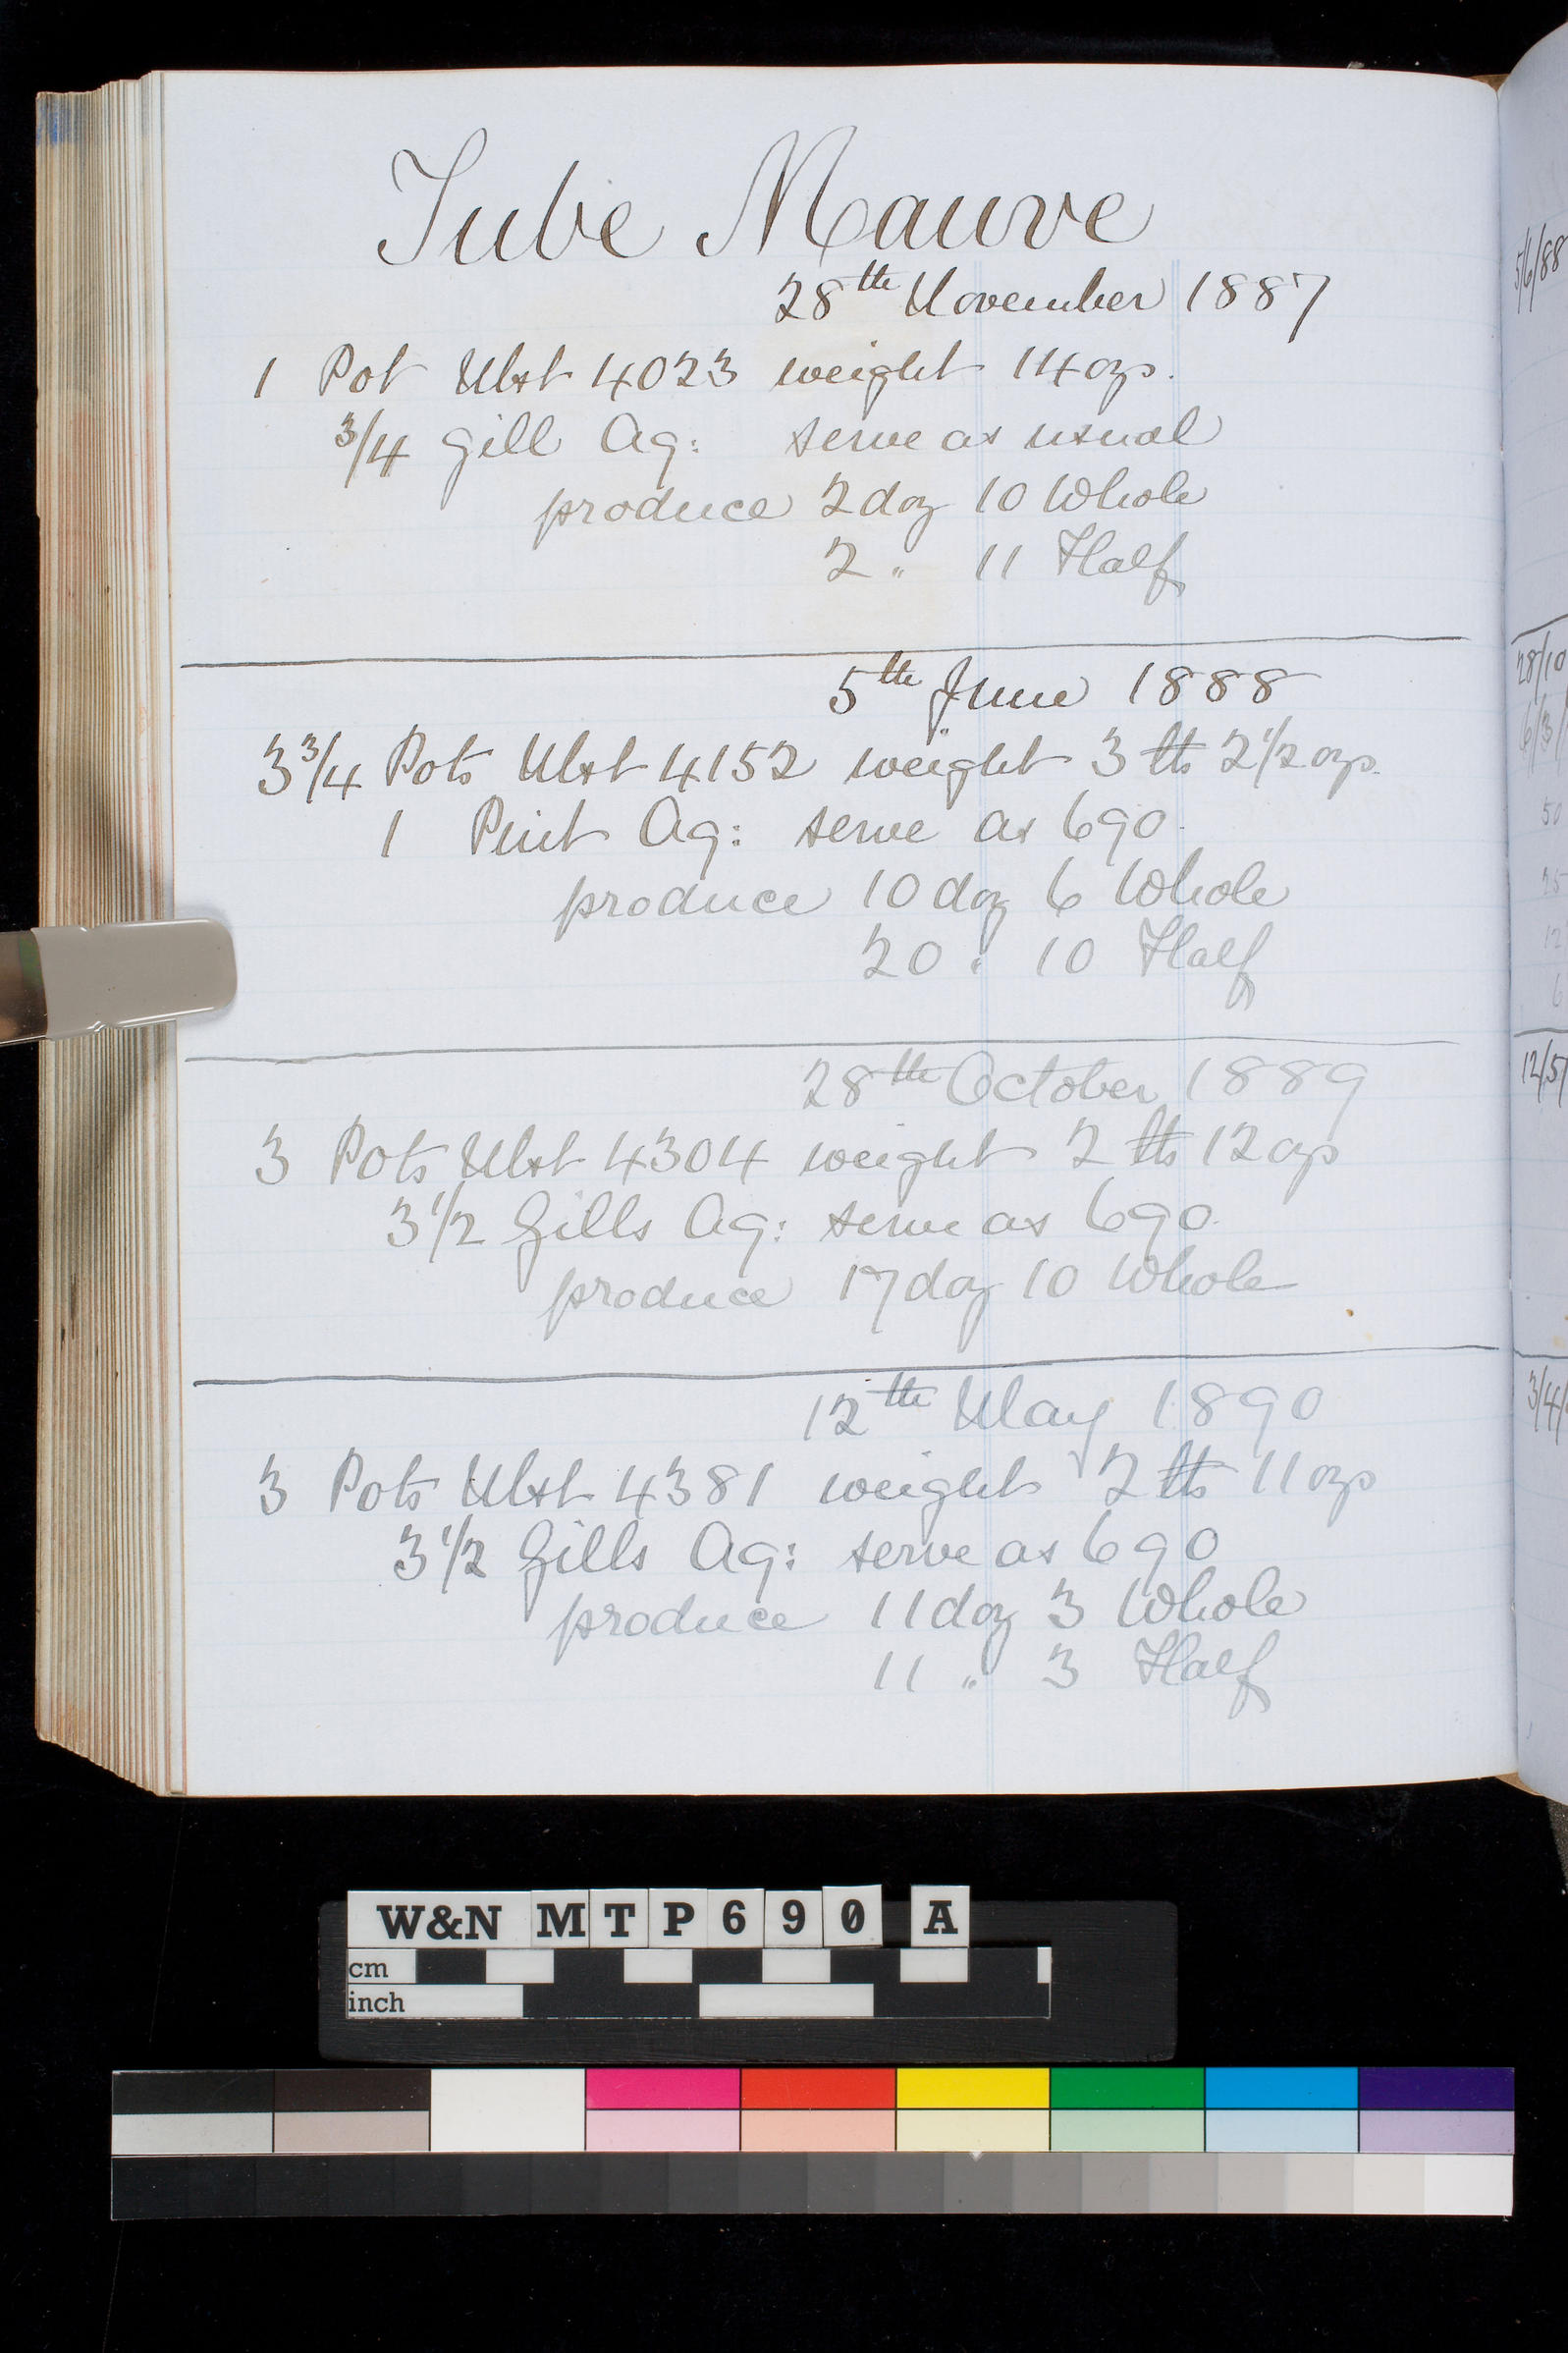 Tube Mauve
28th November 1887
1 Pot Mst 4023 weight 14 ozs.
3/4 Gill Aq: serve as usual
produce 2 doz 10 Whole
2 " 11 Half
5th June 1888
3 3/4 Pots Mst 4152 weight 3 lbs 2 1/2 ozs.
1 Pint Aq: serve as 690.
produce 10 doz 6 Whole
20 " 10 Half
28th October 1889
3 Pots Mst 4304 weight 2 lbs 12 ozs
3 1/2 Gills Aq: serve as 690.
produce 17 doz 10 Whole
12th May 1890
3 Pots Mst 4381 weight 2 lbs 11 ozs
3 1/2 Gills Aq: serve as 690
produce 11 doz 3 Whole
11 " 3 Half
5/6/88
28/10
6/3/
50
25
12
6
12/5/
3/4/
W&N MTP690 A
cm
inch